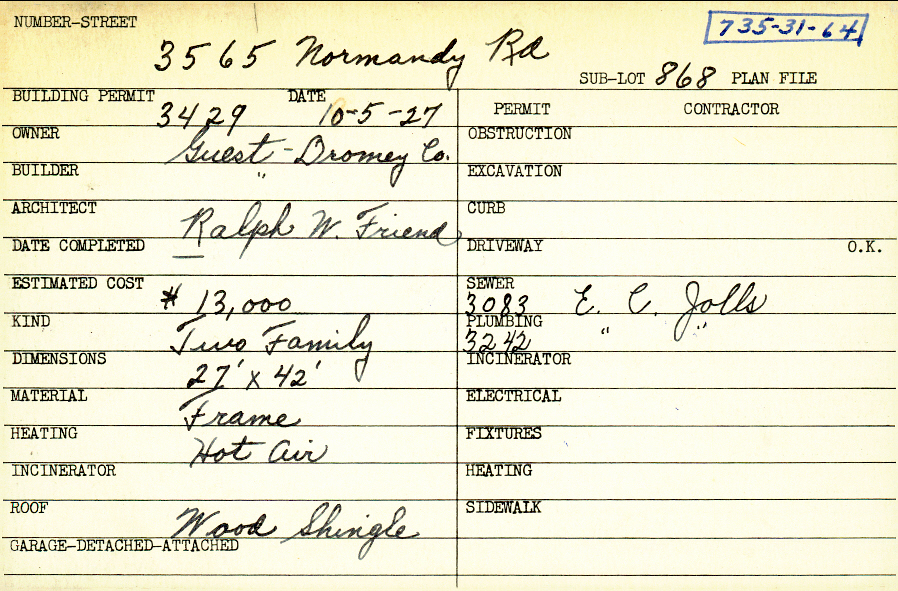 NUMBER-STREET
735-31-64
3565 Normandy Rd
SUB-LOT 868 PLAN FILE
BUILDING PERMIT 3429 DATE 10-5-27
OWNER Guest-Dromey Co.
BUILDER "
ARCHITECT Ralph W. Friend
DATE COMPLETED —
ESTIMATED COST $ 13,000
KIND Two Family
DIMENSIONS 27' x 42'
MATERIAL Frame
HEATING Hot Air
INCINERATOR
ROOF Wood Shingle
GARAGE-DETACHED-ATTACHED
PERMIT CONTRACTOR
OBSTRUCTION
EXCAVATION
CURB
DRIVEWAY O.K.
SEWER
3083 E. C. Jolls
PLUMBING
3242 " "
INCINERATOR
ELECTRICAL
FIXTURES
HEATING
SIDEWALK